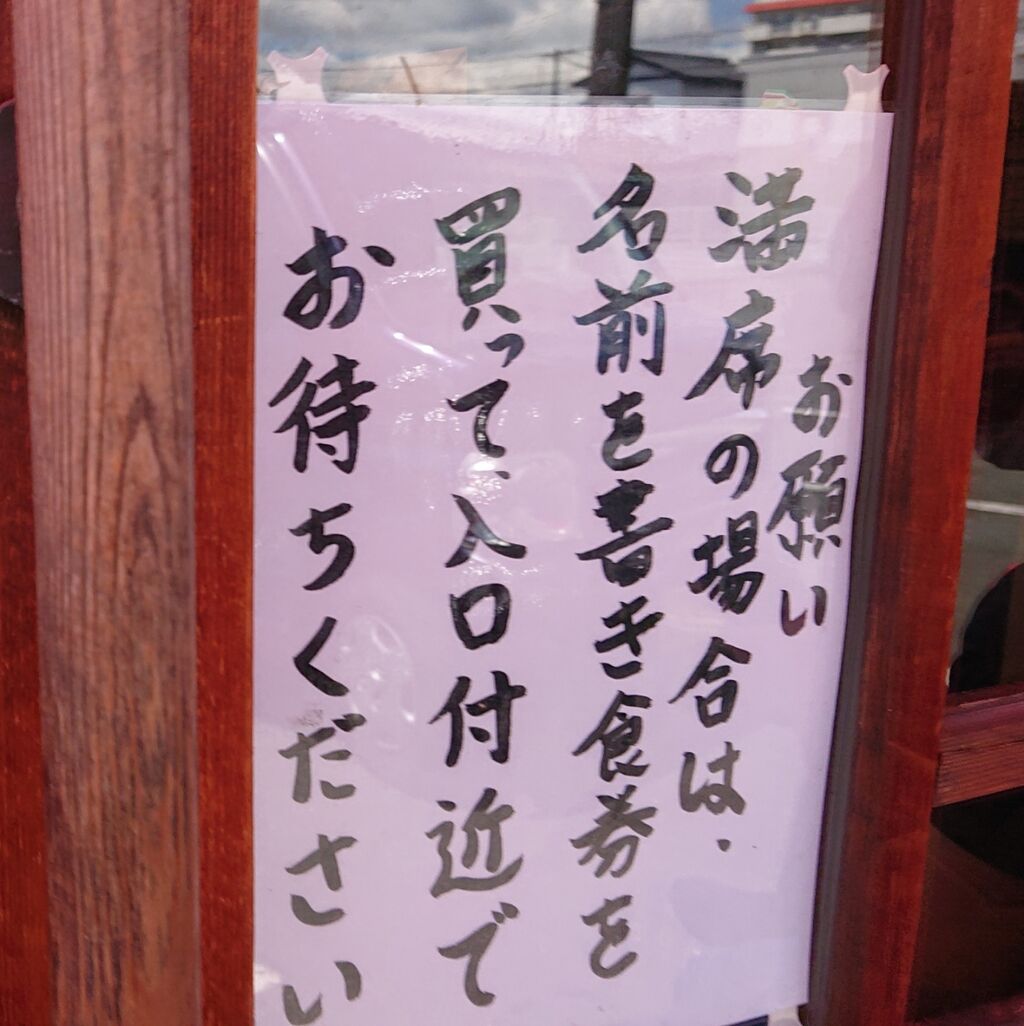 お願い
満席の場合は、
名前を書き食券を
買って、入口付近で
お待ちください